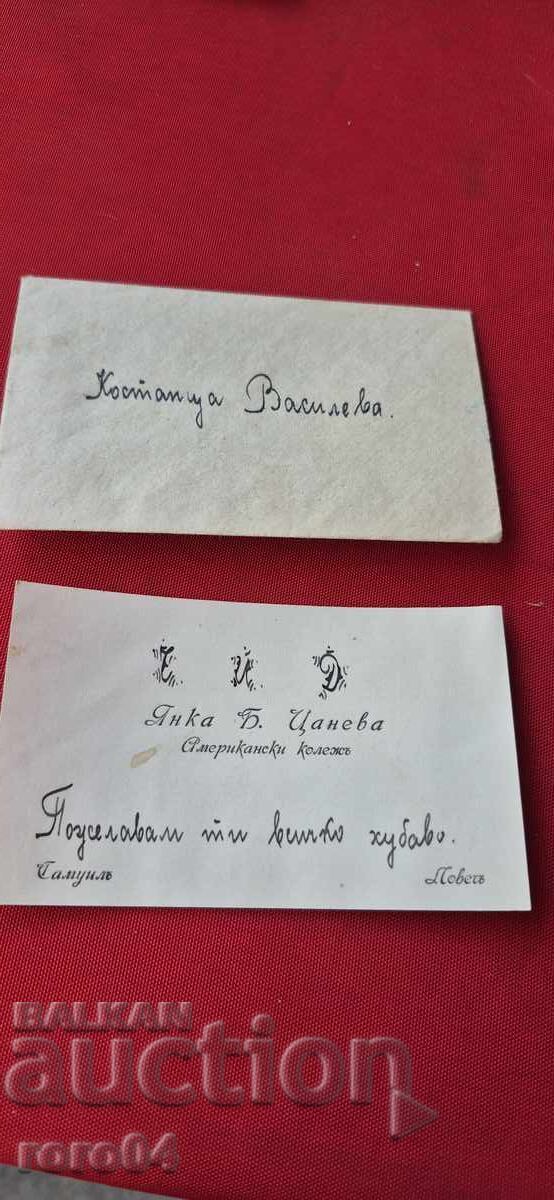 Костанца Василева.
Ч И Д
Янка Б. Цанева
Американски колежъ
Пожелавам ти всичко хубаво.
Самуилъ Ловечъ
BALKAN
auction
roro04